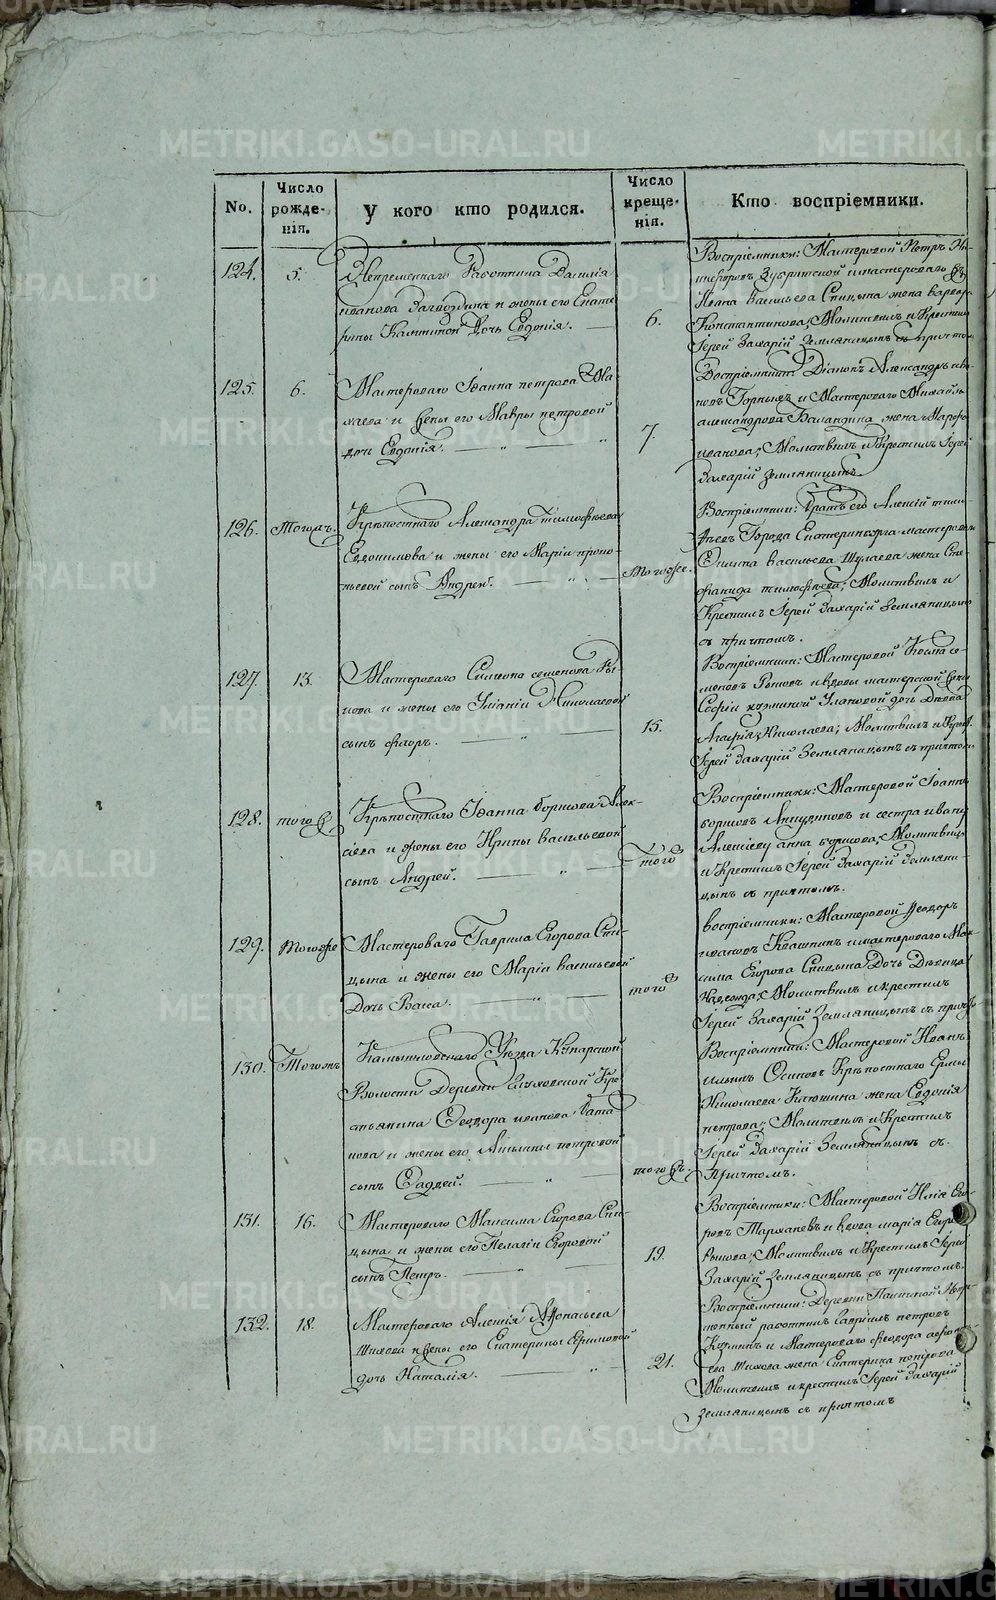 METRIKI.GASO-URAL.RU
No.
Число рожденія.
У кого кто родился.
Число крещенія.
Кто воспріемники.
124.
5.
Непременнаго Работника Василія
иванова и жены его Екате
рины дочь Евдокія.
6.
Воспріемники: Мастеровой Петръ Ни
и мастероваго
Ивана васильева Спицына жена варвара
Константинова; Молитвилъ и Крестилъ
Іерей Захарій Земляницынъ съ причтом
125.
6.
Мастероваго Іоанна петрова
и жены его Мавры петровой
дочь Евдокія.
7.
Воспріемники: Діаконъ Александръ ива
новъ Горныхъ и Мастероваго Михаила
александрова Баландина жена Марѳа
иванова; Молитвилъ и Крестилъ Іерей
Захарій Земляницынъ
126.
Тогожъ
Крѣпостнаго Александра тимофѣева
Евдокимова и жены его Маріи прокоп
ьевой сынъ Андрей.
Тогоже.
Воспріемники: Братъ его Алексій тимо
фѣевъ Города Екатеринбурга мастероваго
васильева жена Сте
фанида тимофѣева; Молитвилъ и
Крестилъ Іерей Захарій Земляницынъ
съ причтомъ.
127.
13.
Мастероваго Симеона семенова Ры
кова и жены его Николаевой
сынъ флоръ.
15.
Воспріемники: Мастеровой Козма се
меновъ Рыковъ и вдовы мастерской
Софіи козминой Улановой дочь Дѣвица
Агафія Николаева; Молитвилъ и Крест.
Іерей Захарій Земляницынъ съ причтом
128.
тогож
Крѣпостнаго Іоанна борисова Алек
сіева и жены его Ирины васильевой
сынъ Андрей.
Того
Воспріемники: Мастеровой Іоаннъ
борисовъ и сестра ивану
Алексіеву анна борисова; Молитвилъ
и Крестилъ Іерей Захарій Земляни
цынъ съ причтомъ.
129.
Тогоже
Мастероваго Гаврила Егорова Спи
цына и жены его Маріи васильевой
Дочь Васса.
того
Воспріемники: Мастеровой Ѳеодоръ
ивановъ Квашнинъ и мастероваго Мак
сима Егорова Спицына Дочь Дѣвица
Молитвилъ и крестилъ
Іерей Захарій Земляницынъ съ причто
130.
Тогожъ
Камышловскаго Уѣзда Кунарской
Волости Деревни Кре
стьянина Ѳеодора иванова
нова и жены его петровой
сынъ Ѳаддей.
тогожъ.
Воспріемники: Мастеровой Иванъ
ильинъ Осиповъ Крѣпостнаго
Николаева Катюшина жена Евдокія
петрова; Молитвилъ и Крестилъ
Іерей Захарій Земляницынъ съ
Причтомъ.
131.
16.
Мастероваго Максима Егорова Спи
цына и жены его Пелагіи Егоровой
сынъ Петръ.
19.
Воспріемники: Мастеровой Илія Его
ровъ и вдова марія Егоро
Рыкова; Молитвилъ и Крестилъ Іерей
Захарій Земляницынъ съ причтомъ.
132.
18.
Мастероваго Алексія Афонасьева
Шихова и жены его Екатерины Ефимовой
дочь Наталія.
21.
Воспріемники: Деревни Паниной Непре
менный работникъ Гавріилъ петровъ
Козминъ и Мастероваго Ѳеодора афонась
ева Шихова жена Екатерина петрова
Молитвилъ и крестилъ Іерей Захарій
Земляницынъ съ причтомъ